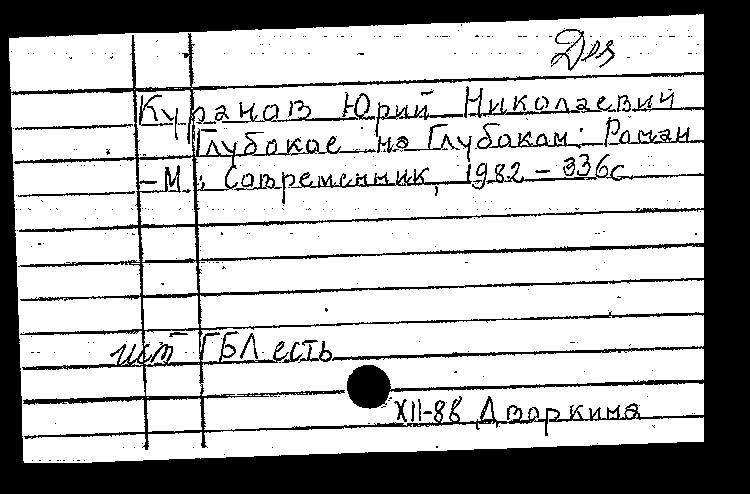 Куранов Юрий Николаевич
Глубокое на Глубоком: Роман
-М.: Современник, 1982 - 336с.
ист ГБЛ есть
XII-86 Дворкина